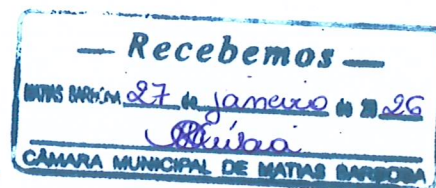 — Recebemos —
MATIAS BARBOSA 27 de janeiro de 20 26
CÂMARA MUNICIPAL DE MATIAS BARBOSA